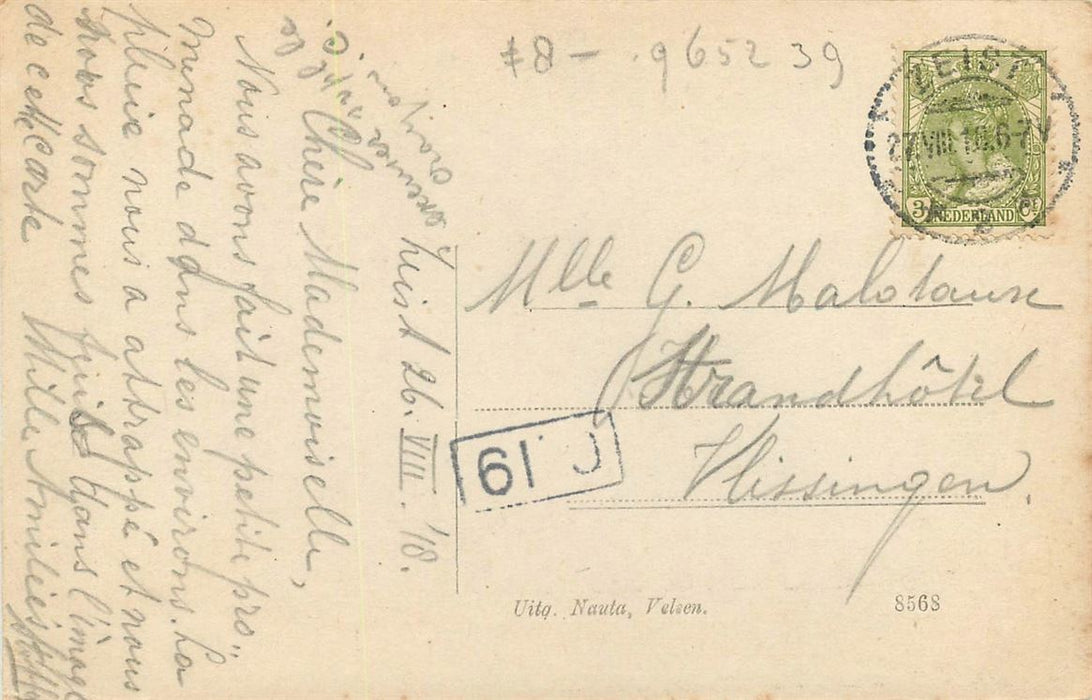 ‡8 - . 9652 39
ZEIST
27 VIII.10.6-7 V
3 NEDERLAND Ct
Mlle G.
Strandhôtel
Vlissingen.
61
Uitg. Nauta, Velsen.
8568
Zeist 26. VIII. '10.
Chère Mademoiselle,
Nous avons fait une petite pro„
minade dans les environs. La
pluie nous a attrappé et nous
nous sommes dans l'image
de cette carte Mille Amitiés